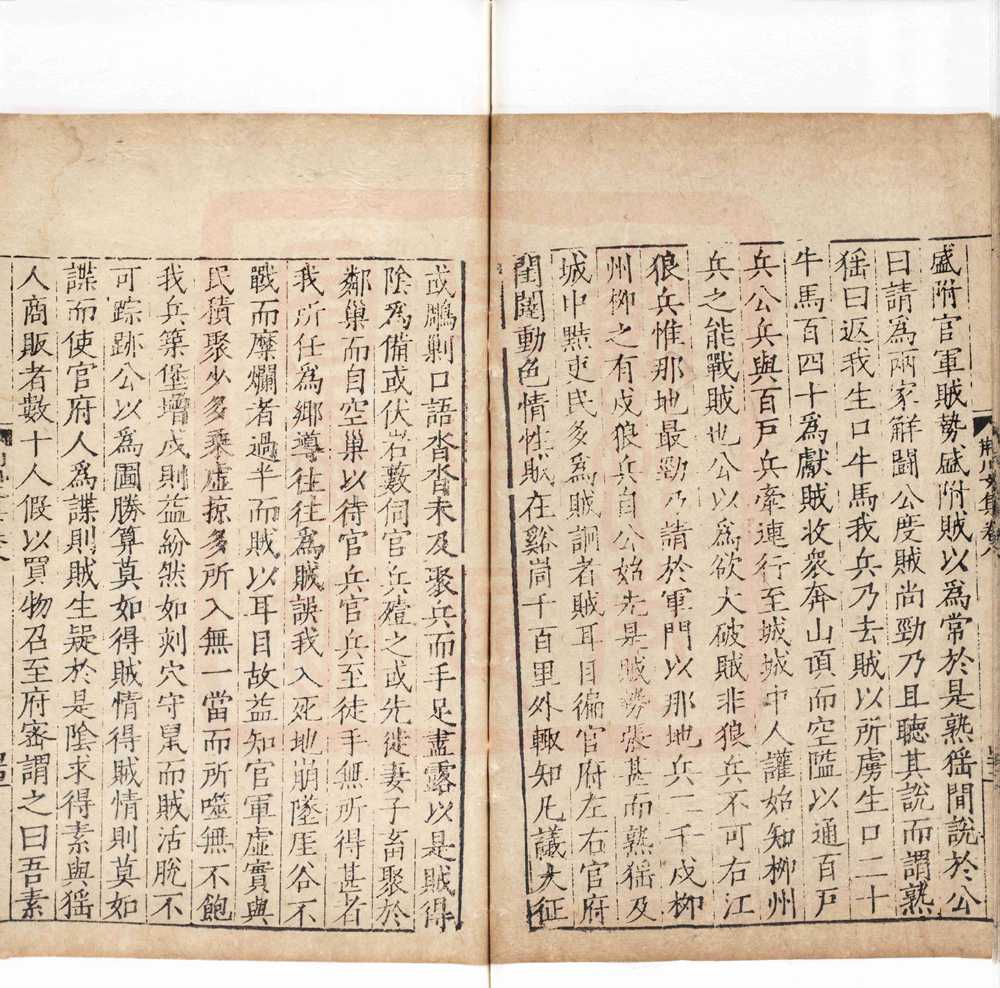 盛附官軍賊勢盛附賊以爲常於是熟猺間說於公
曰請爲兩家解鬪公度賊尚勁乃且聽其說而謂熟
猺曰返我生口牛馬我兵乃去賊以所虜生口二十
牛馬百四十爲獻賊收衆奔山頂而空壒以通百戶
兵公兵與百戶兵牽連行至城城中人讙始知柳州
兵之能戰賊也公以爲欲大破賊非狼兵不可右江
狼兵惟那地最勁乃請於軍門以那地兵二千戍柳
州柳之有戍狼兵自公始先是賊勢張甚而熟猺及
城中黠吏民多爲賊詗者賊耳目徧官府左右官府
閨闥動色情性賊在谿峝千百里外輒知凡議大征
或鵰剿口語沓沓未及聚兵而手足盡露以是賊得
陰爲備或伏岩藪伺官兵殪之或先徙妻子畜聚於
鄰巢而自空巢以待官兵官兵至徒手無所得甚者
我所任爲鄉導往往爲賊誤我入死地崩墜厓谷不
戰而糜爛者過半而賊以耳目故益知官軍虛實與
民積聚少多乘虛掠多所入無一當而所噬無不飽
我兵築堡增戍則益紛然如刺穴守鼠而賊活脫不
可踪跡公以爲圖勝算莫如得賊情得賊情則莫如
諜而使官府人爲諜則賊生疑於是陰求得素與猺
人商販者數十人假以買物召至府密謂之曰吾素
荊川文集卷八